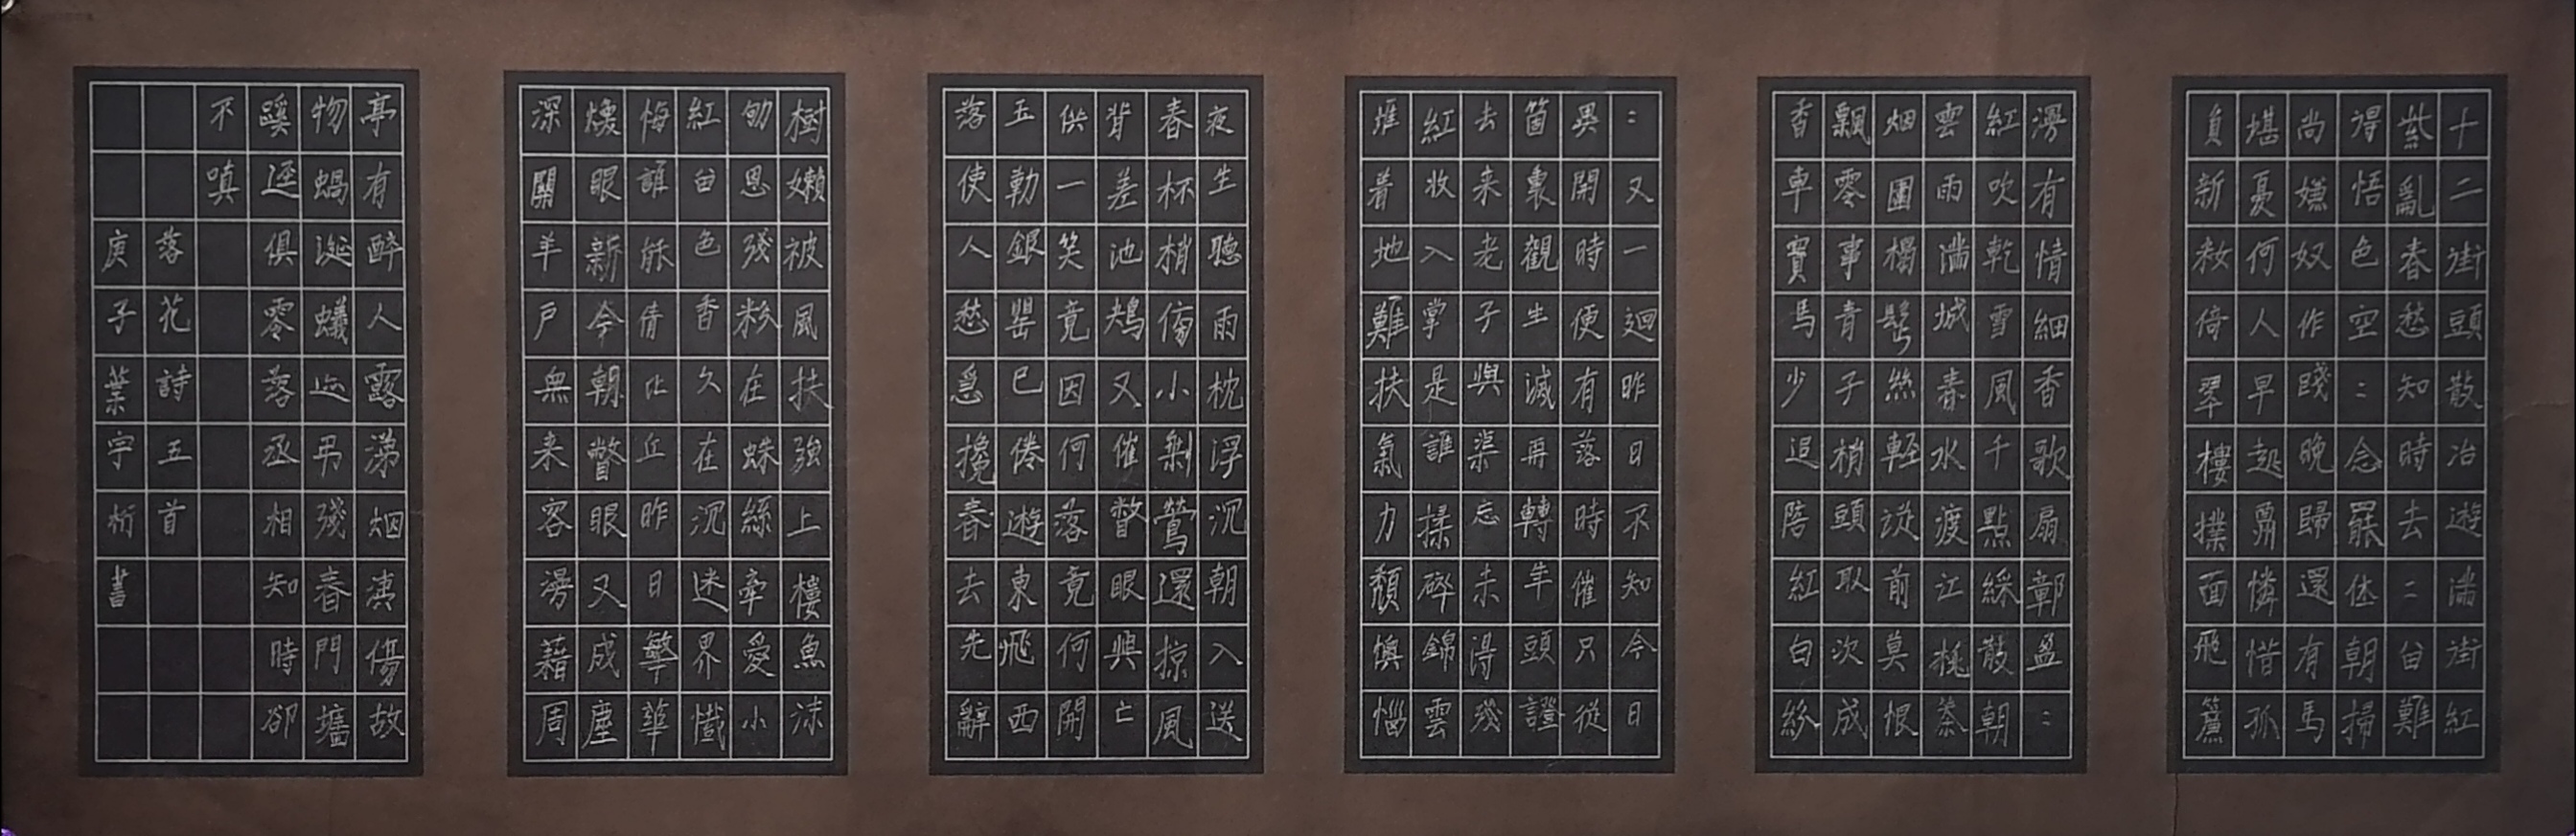 十二街頭散冶遊滿街紅
紫亂春愁知時去二留難
得悟色空二念罷休朝掃
尚嫌奴作踐晚歸還有馬
堪憂何人早起勇憐惜孤
負新妝倚翠樓撲面飛簾
漫有情細香歌扇鄣盈二
紅吹乾雪風千點綵散朝
雲雨滿城春水渡江桃葉
烟團榻髩絲輕從前莫恨
飄零事青子梢頭取次成
香車寶馬少追陪紅白紛
二又一迴昨日不知今日
異開時便有落時催只從
箇裏觀生滅再轉年頭證
去来老子與渠忘未得殘
紅收入掌是誰揉碎錦雲
堆着地難扶氣力頹懊惱
夜生聽雨枕浮沉朝入送
春杯梢傷小剩鶯還掠風
背差池鴂又催瞥眼興亡
供一笑竟因何落竟何開
玉勒銀罌已倦遊東飛西
落使人愁急攙春去先辭
樹嬾被風扶強上樓魚沫
劬恩殘粉在蛛絲牽愛小
紅留色香久在沉迷界懺
悔誰能倩比丘昨日繁華
煖眼新今朝瞥眼又成塵
深關羊戶無来客漫藉周
亭有醉人露涕烟洟傷故
物蝸涎蟻迹弔殘春門墻
蹊逕俱零落丞相知時卻
不嗔
落花詩五首
庚子葉宇析書